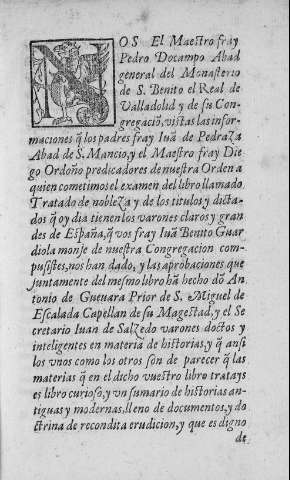 NOS El Maestro fray
Pedro Docampo Abad
general del Monasterio
de S. Benito el Real de
Valladolid y de su Con-
gregaciõ, vistas las infor-
maciones q̃ los padres fray Iuã de Pedraza
Abad de S. Mancio, y el Maestro fray Die
go Ordoño predicadores de nuestra Orden a
quien cometimos el examen del libro llamado
Tratado de nobleza y de los titulos y dicta-
dos q̃ oy dia tienen los varones claros y gran
des de España, q̃ vos fray Iuã Benito Guar
diola monje de nuestra Congregacion com-
pusistes, nos han dado, y las aprobaciones que
juntamente del mesmo libro hã hecho dõ An-
tonio de Gueuara Prior de S. Miguel de
Escalada Capellan de su Magestad, y el Se
cretario Iuan de Salzedo varones doctos y
inteligentes en materia de historias, y q̃ ansi
los vnos como los otros son de parecer q̃ las
materias q̃ en el dicho vuestro libro tratays
es libro curioso, y vn sumario de historias an-
tiguas y modernas, lleno de documentos, y do
ctrina de recondita erudicion, y que es digno
de